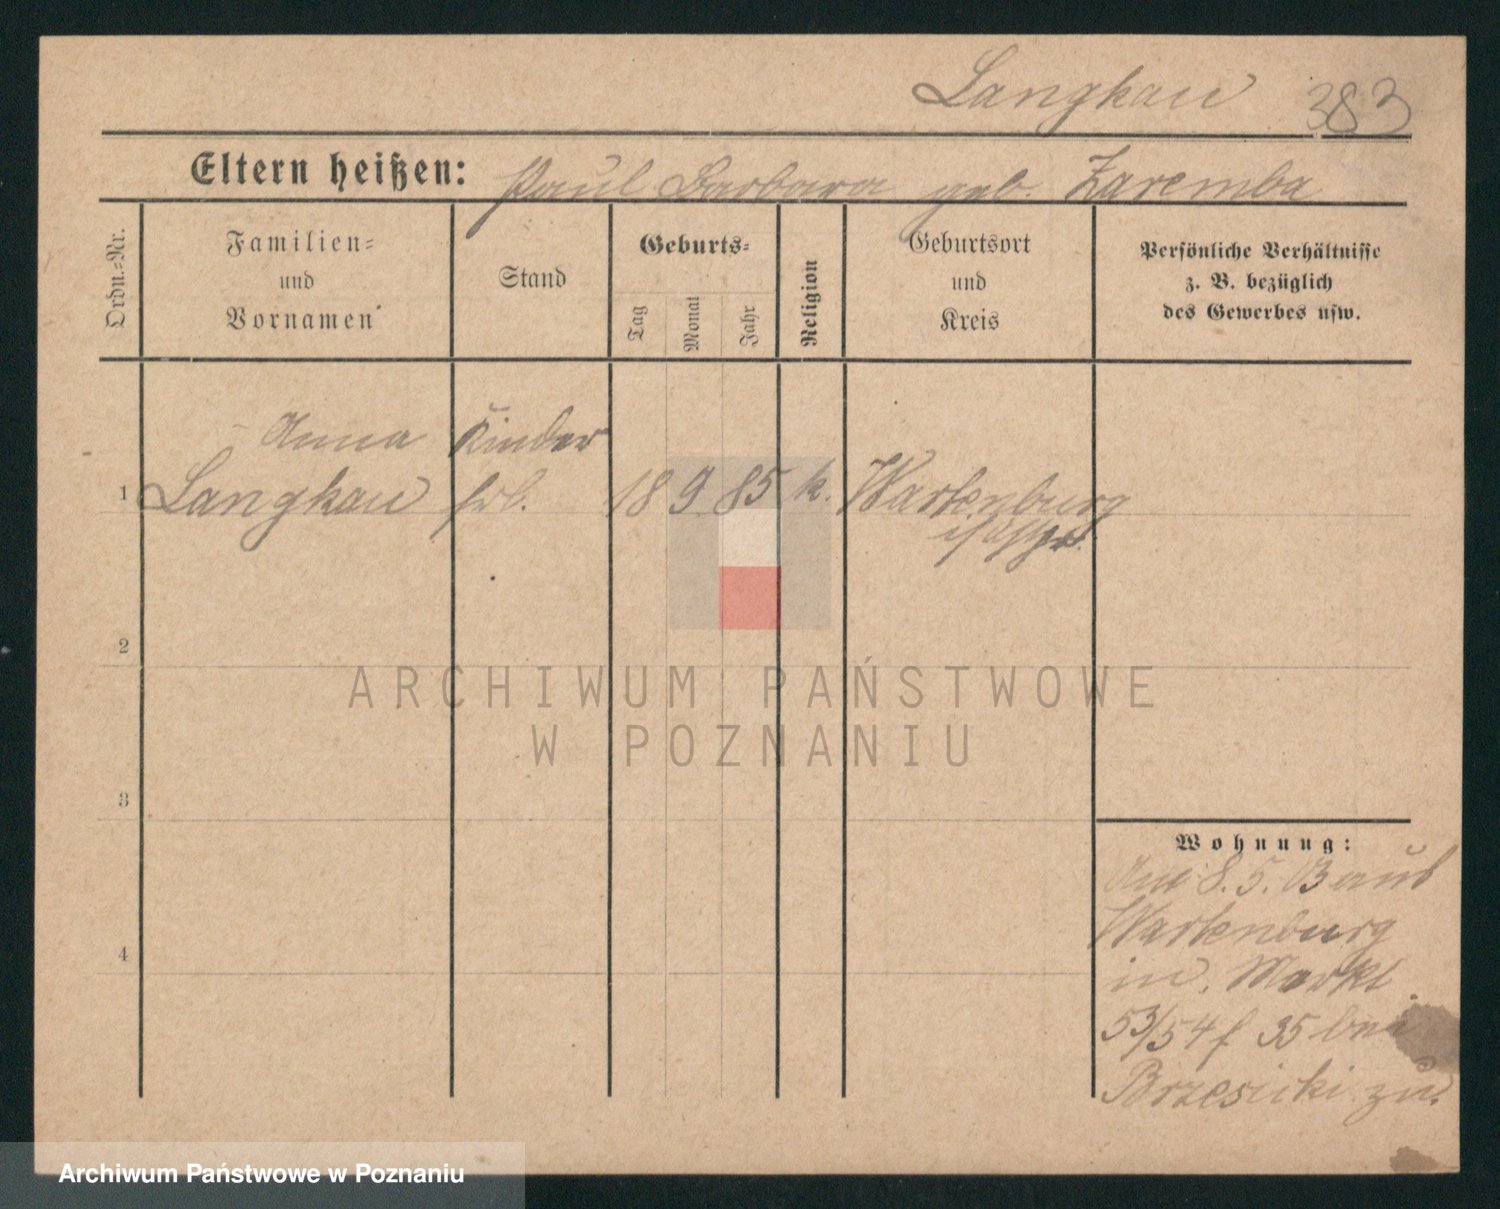 Langkau 383
Eltern heißen: Paul Barbara geb. Zaremba
Ordn.=Nr.
Familien=
und
Vornamen
Stand
Geburts=
Tag
Monat
Jahr
Religion
Geburtsort
und
Kreis
Persönliche Verhältnisse
z. B. bezüglich
des Gewerbes usw.
Anna Kinder
1 Langkau frl. 18 9 85 k. Wartenburg
2
3
4
ARCHIWUM PAŃSTWOWE
W POZNANIU
Wohnung:
Am 8. 5. 03 aus
Wartenburg
in. Markt
53/54 f 35 bei
Brzesicki zu.
Archiwum Państwowe w Poznaniu